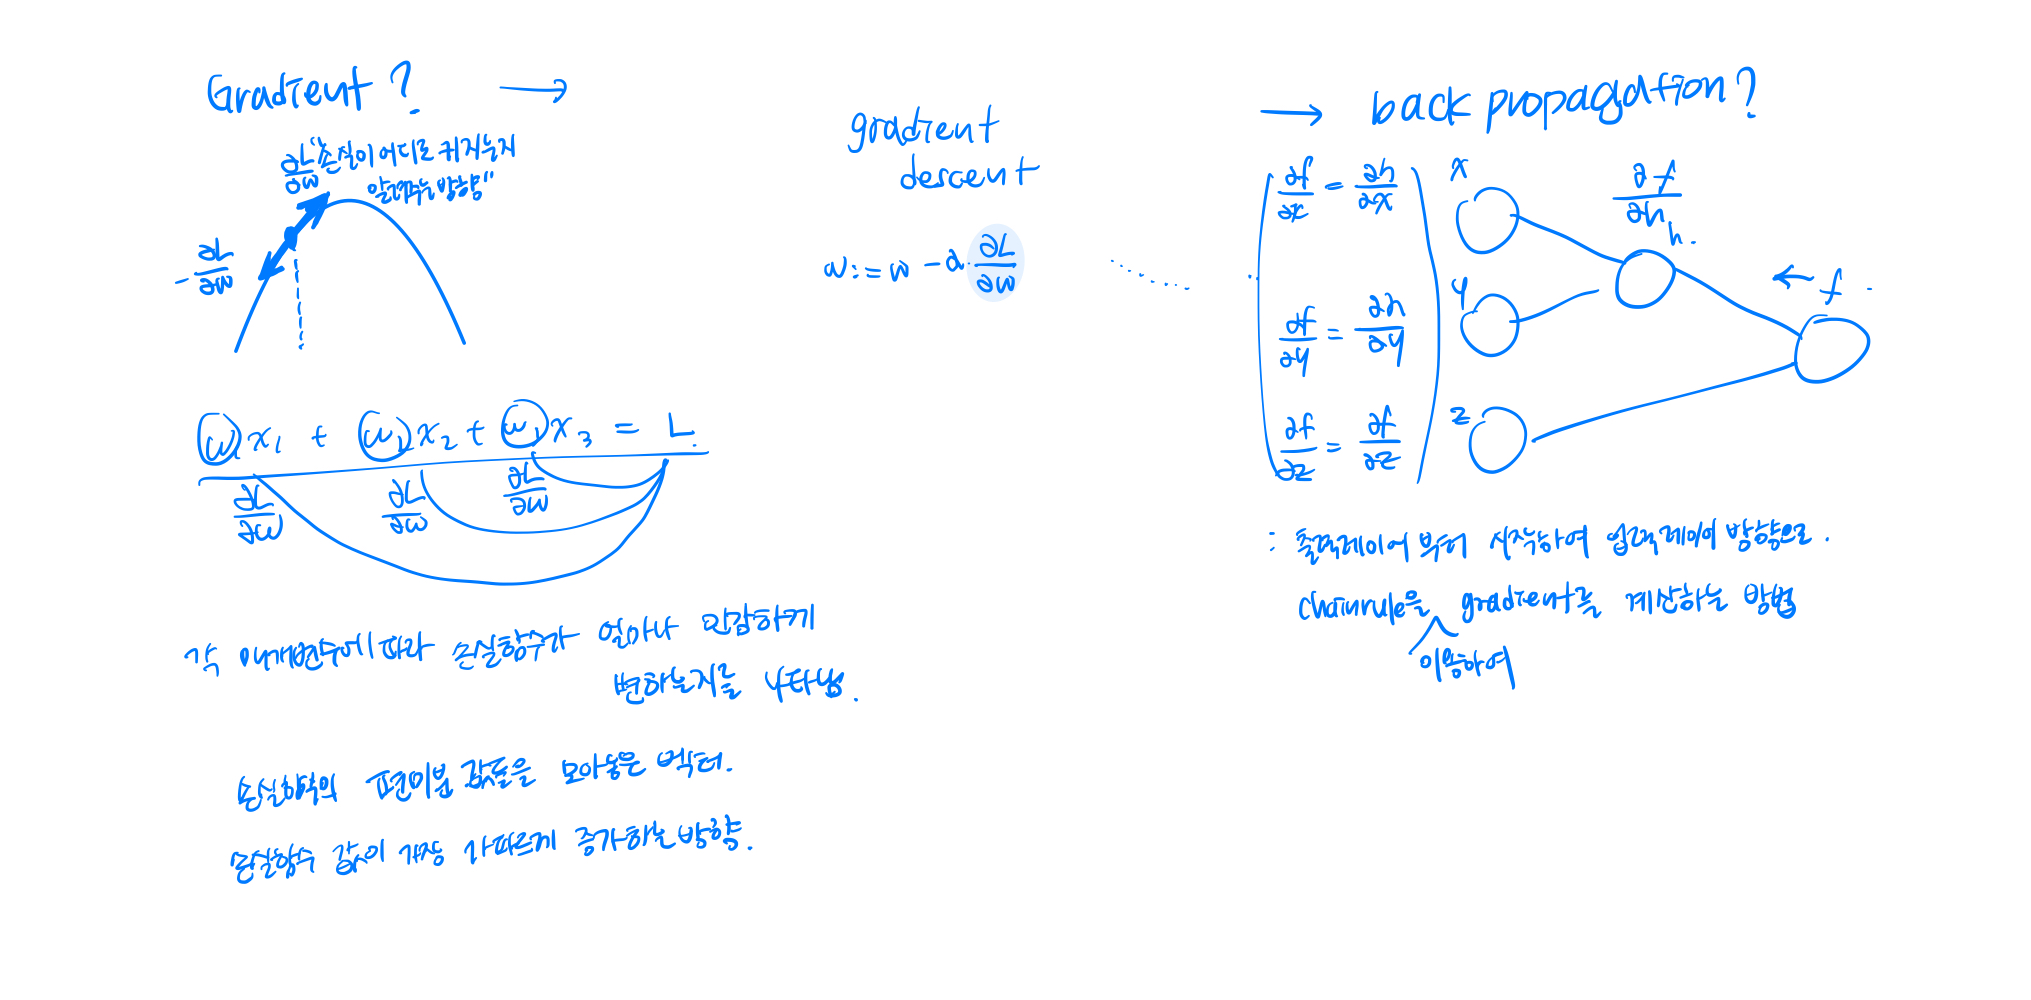 Gradient? →
∂L/∂w "손실이 어디로 커지는지
알려주는 방향"
-∂L/∂w
w₁x₁ + w₂x₂ + w₃x₃ = L
∂L/∂w ∂L/∂w ∂L/∂w
각 매개변수에 따라 손실함수가 얼마나 민감하게
변하는지를 나타냄.
손실함수의 편미분 값들을 모아놓은 벡터.
손실함수 값이 가장 가파르게 증가하는 방향.
gradient
descent
w := w - α · ∂L/∂w
→ back propagation?
∂f/∂x = ∂h/∂x
∂f/∂y = ∂h/∂y
∂f/∂z = ∂f/∂z
x
y
z
∂f/∂h
h.
← f
: 출력레이어 부터 시작하여 입력레이어 방향으로.
chainrule을 이용하여 gradient를 계산하는 방법